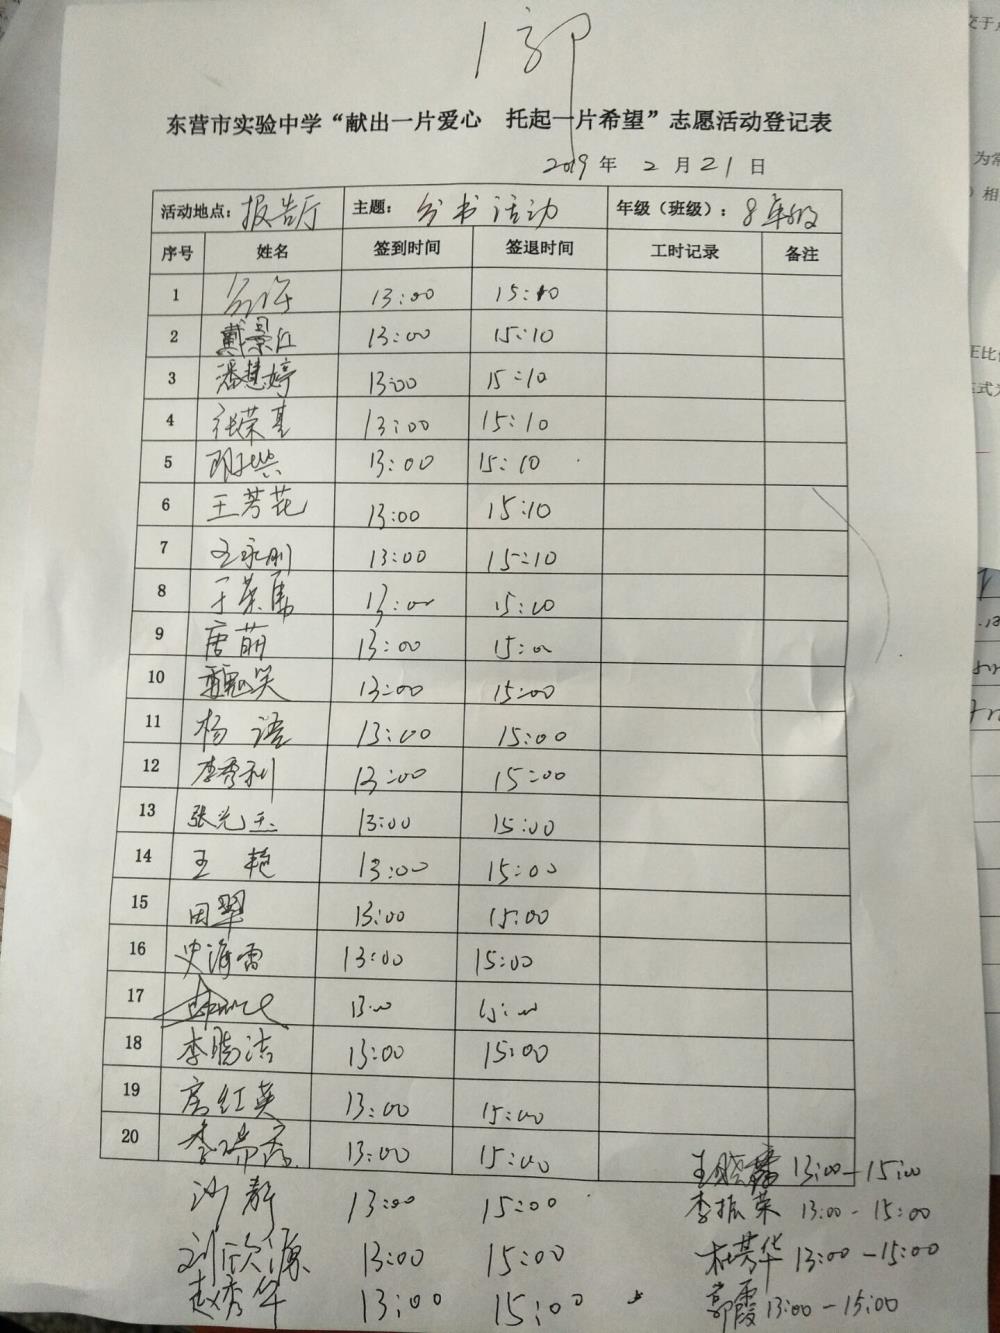 1 郭
东营市实验中学“献出一片爱心 托起一片希望”志愿活动登记表
2019 年 2 月 21 日
活动地点：报告厅 主题：分书活动 年级（班级）：8年级
序号 姓名 签到时间 签退时间 工时记录 备注
1 13:00 15:10
2 戴景红 13:00 15:10
3 潘慧婷 13:00 15:10
4 张荣基 13:00 15:10
5 13:00 15:10
6 王芳花 13:00 15:10
7 王永刚 13:00 15:10
8 于荣 13:00 15:00
9 唐萌 13:00 15:00
10 魏笑 13:00 15:00
11 杨语 13:00 15:00
12 李秀利 13:00 15:00
13 张光玉 13:00 15:00
14 王艳 13:00 15:00
15 田翠 13:00 15:00
16 史海雷 13:00 15:00
17 13:00 15:00
18 李晓洁 13:00 15:00
19 房红英 13:00 15:00
20 李瑞霞 13:00 15:00
沙静 13:00 15:00
刘欣源 13:00 15:00
赵秀华 13:00 15:00
王晓霞 13:00-15:00
李振荣 13:00-15:00
杜芳华 13:00-15:00
郭霞 13:00-15:00